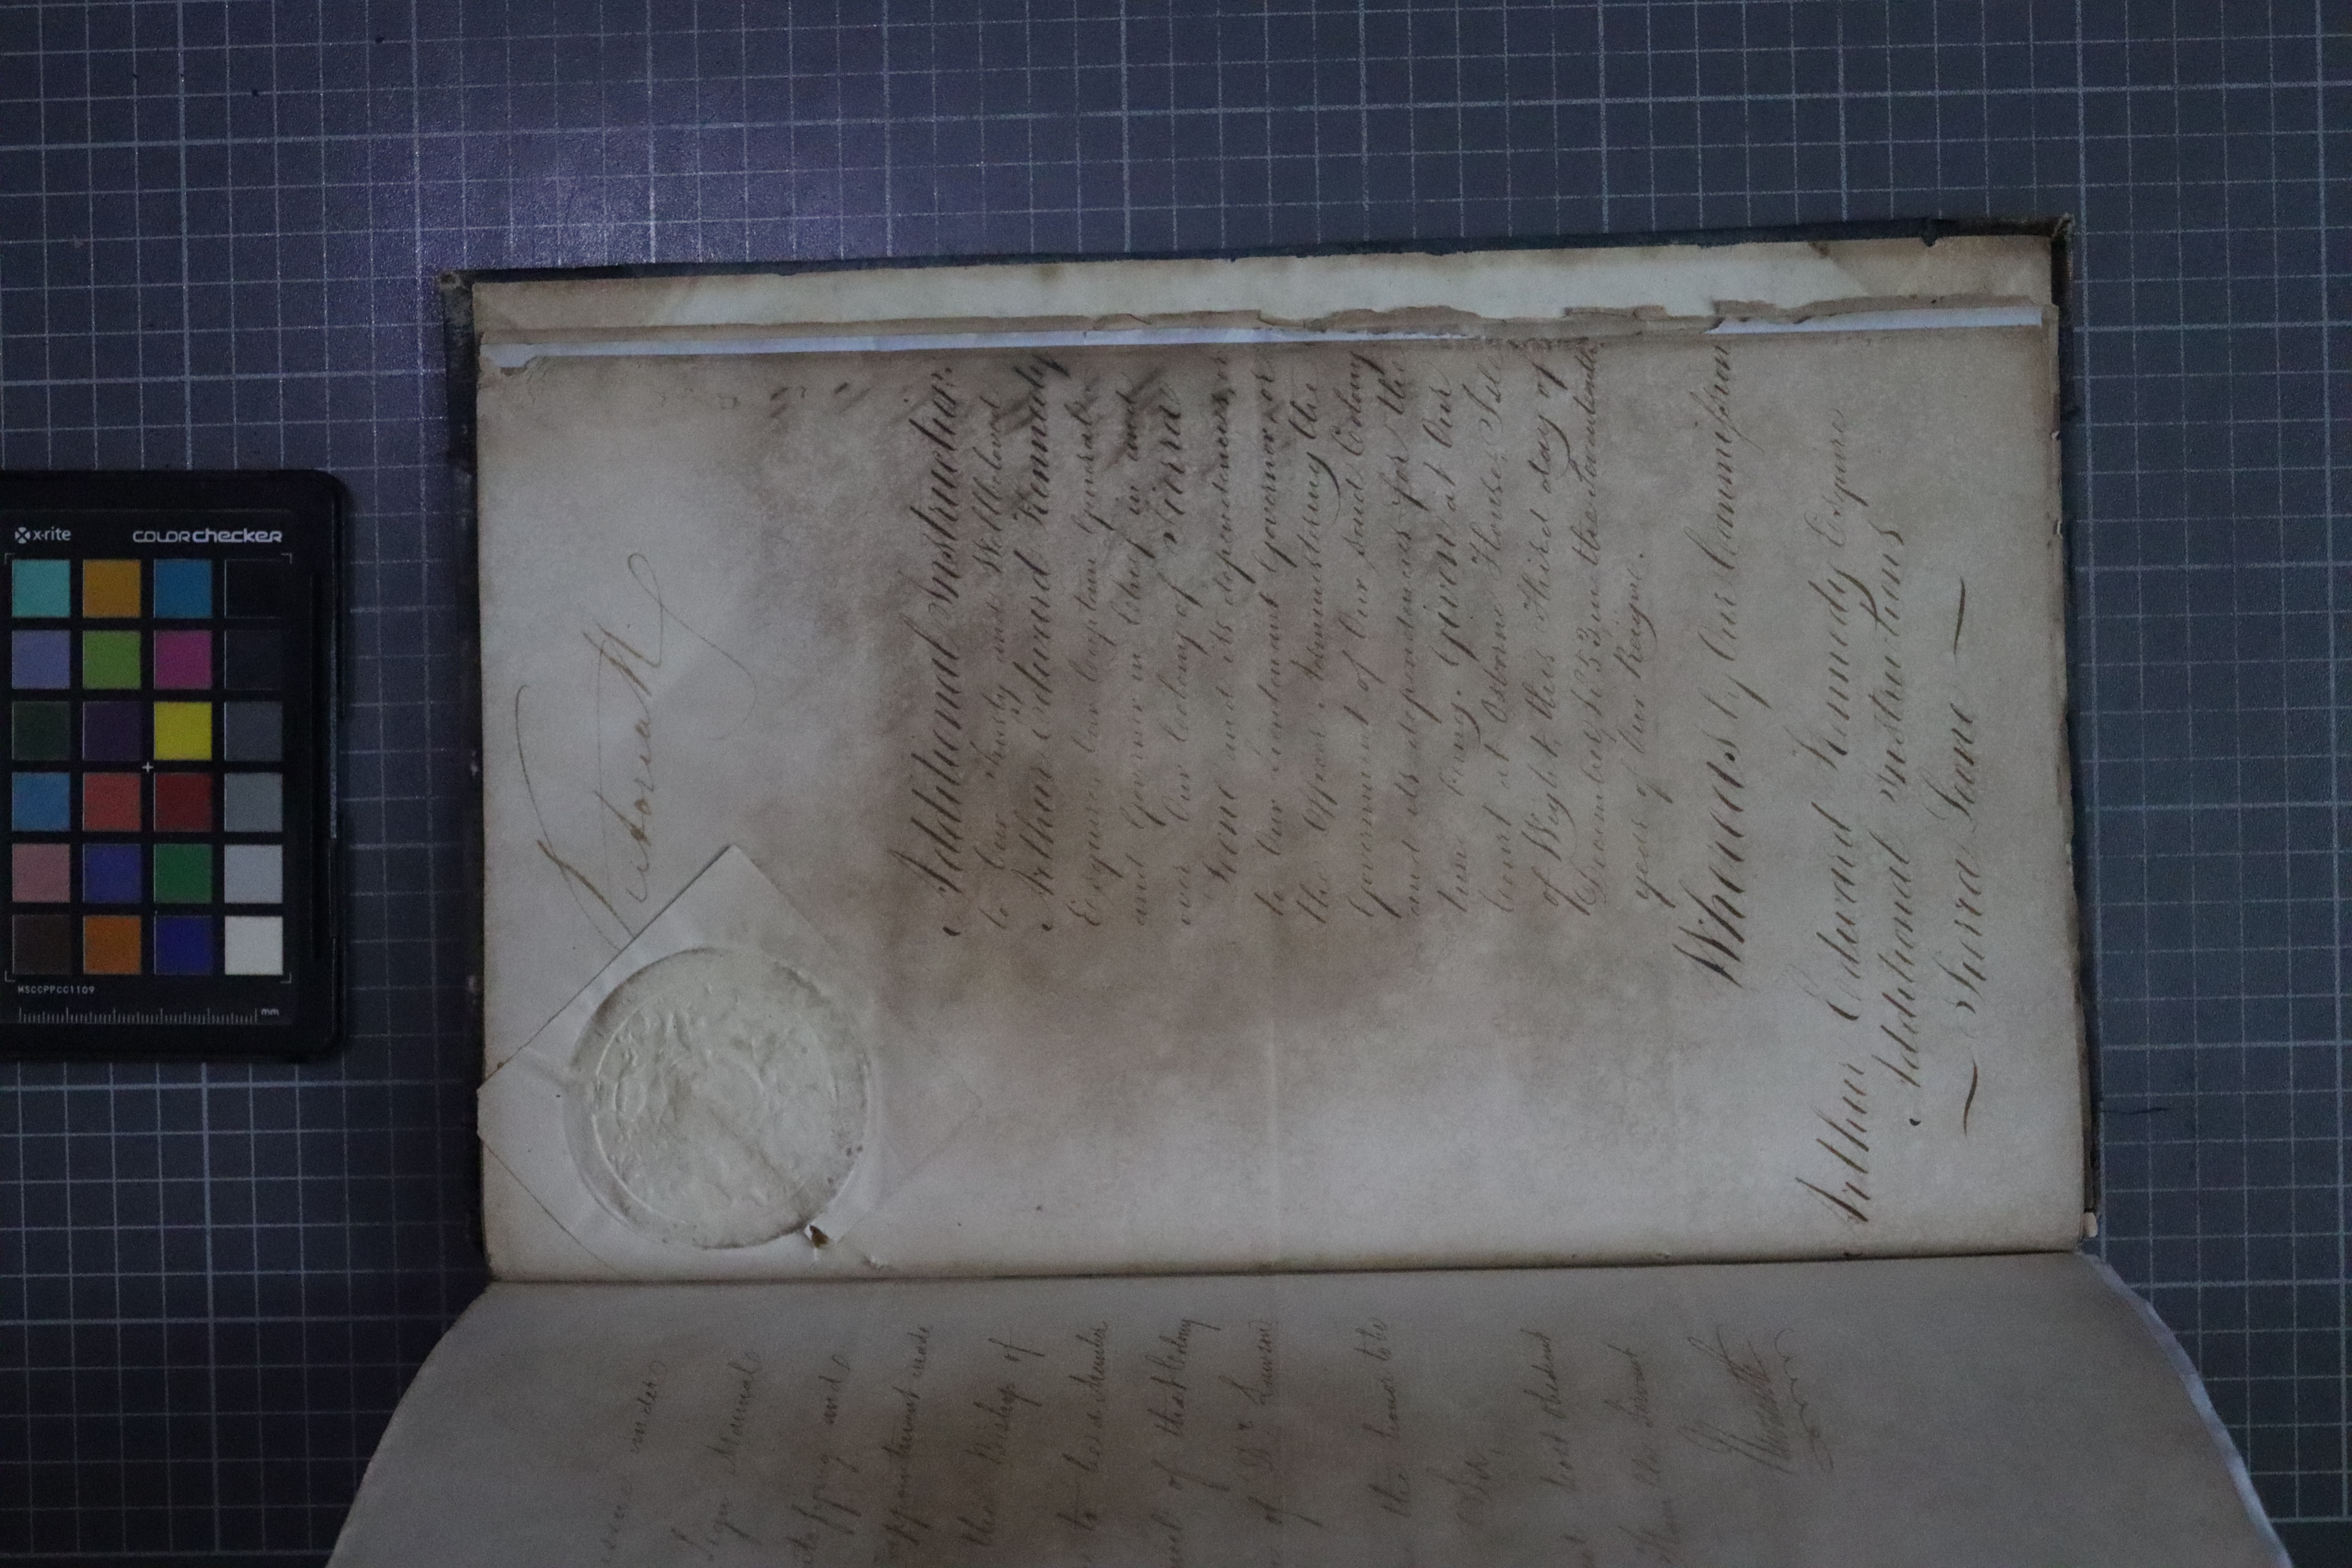 Victoria R.
Additional Instructions
to Our Trusty and Wellbeloved
Arthur Edward Kennedy
Esquire Our Captain General
and Governor in Chief in and
over Our Colony of Sierra
Leone and its dependencies or
to Our Lieutenant Governor or
the Officer Administering the
Government of Our said Colony
and its dependencies for the
time being. Given at Our
Court at Osborne House, Isle
of Wight this Third day of
1853 in the Seventeenth
year of Our Reign.
Whereas by Our Commission
Arthur Edward Kennedy Esquire
Additional Instructions
— Sierra Leone —
under
Sign Manual
and
appointment made
the Bishop of
to be a Member
of that Colony
of Dr.
the honor to be
Sir
most obedient
Humble Servant
x-rite
colorchecker
MSCCPPCC1109
mm